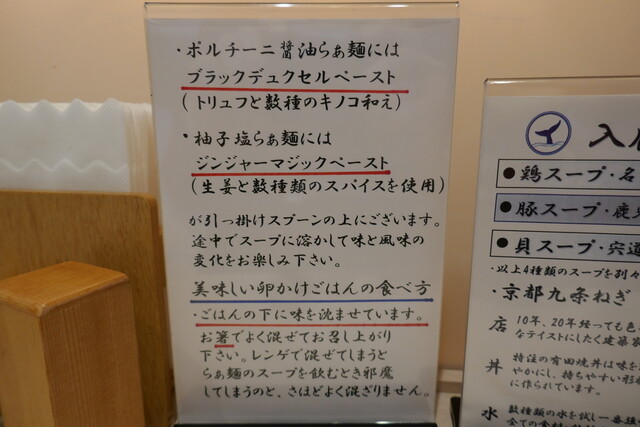 ・ポルチーニ醤油らぁ麺には
ブラックデュクセルペースト
(トリュフと数種のキノコ和え)
・柚子塩らぁ麺には
ジンジャーマジックペースト
(生姜と数種類のスパイスを使用)
が引っ掛けスプーンの上にございます。
途中でスープに溶かして味と風味の
変化をお楽しみ下さい。
美味しい卵かけごはんの食べ方
・ごはんの下に味を沈ませています。
お箸でよく混ぜてお召し上がり
下さい。レンゲで混ぜてしまうと
らぁ麺のスープを飲むとき邪魔
してしまうのと、さほどよく混ざりません。
入
●鶏スープ・名
●豚スープ・鹿
●貝スープ・宍道
・以上4種類のスープを別々
・京都九条ねぎ
店 10年、20年経っても色
なテイストにしたく建築家
丼 特注の有田焼丼は味を
やかにし、持ちやすい形
に作られています。
水 数種類の水を試し一番
全ての食材